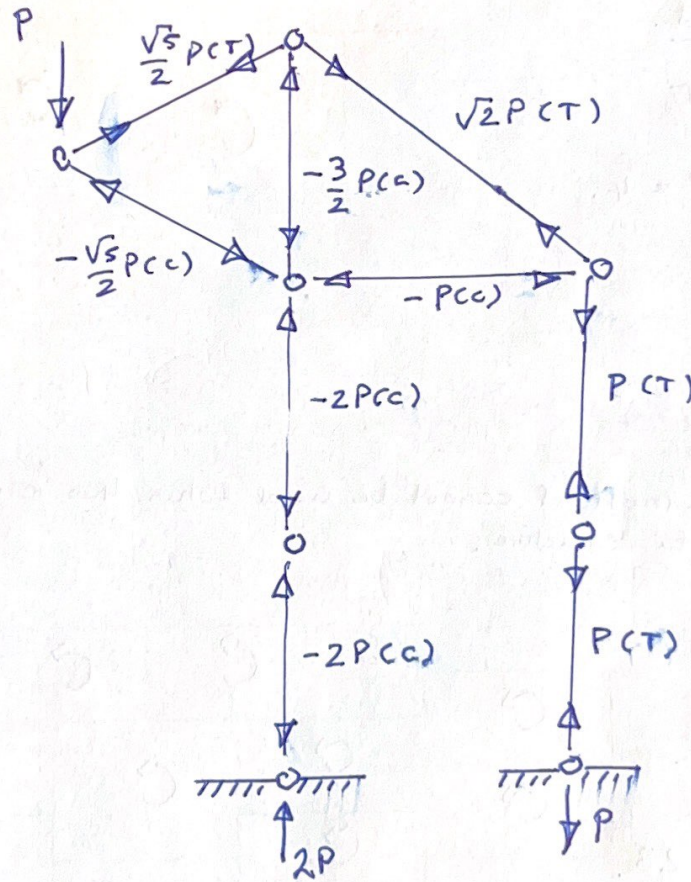 P
√5/2 P(T)
√2 P(T)
-3/2 P(C)
-√5/2 P(C)
-P(C)
-2P(C)
P(T)
-2P(C)
P(T)
2P
P